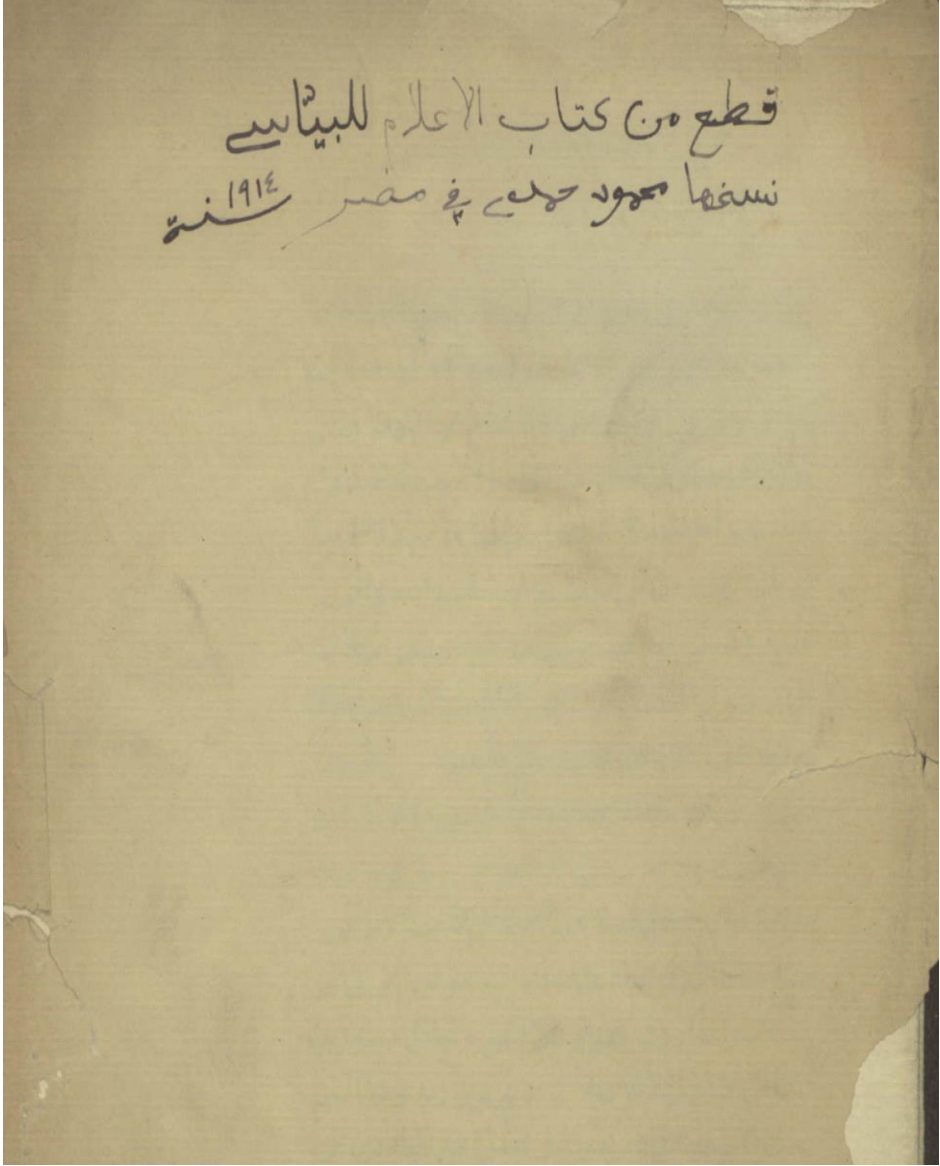 قطع من كتاب الأعلام للبيّاسي
نسخها محمود حمدي في مصر سنة ١٩١٤